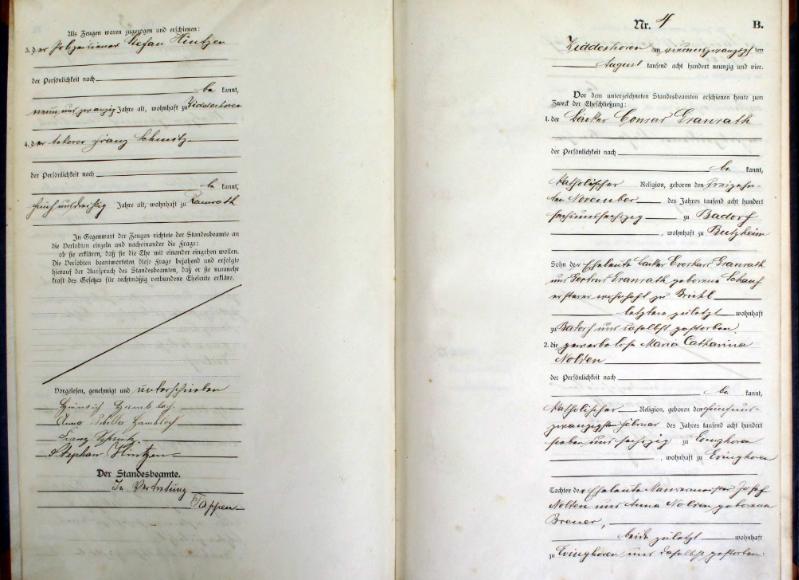 Als Zeugen waren zugezogen und erschienen:
3. der Polizeidiener Stefan Hintzen
der Persönlichkeit nach
be kannt,
neun und zwanzig Jahre alt, wohnhaft zu
4. der Franz Schmitz
der Persönlichkeit nach
be kannt,
fünf und dreißig Jahre alt, wohnhaft zu Ramrath
In Gegenwart der Zeugen richtete der Standesbeamte an
die Verlobten einzeln und nacheinander die Frage:
ob sie erklären, daß sie die Ehe mit einander eingehen wollen.
Die Verlobten beantworteten diese Frage bejahend und erfolgte
hierauf der Ausspruch des Standesbeamten, daß er sie nunmehr
kraft des Gesetzes für rechtmäßig verbundene Eheleute erkläre.
Vorgelesen, genehmigt und unterschrieben
Heinrich Hambloch
Anna Hambloch
Franz Schmitz
Stephan Hintzen
Der Standesbeamte.
In Vertretung
Nr. 4
B.
am vierundzwanzigsten
August tausend acht hundert neunzig und vier.
Vor dem unterzeichneten Standesbeamten erschienen heute zum
Zweck der Eheschließung:
1. der Bäcker Conrad Granrath
der Persönlichkeit nach
be kannt,
katholischer Religion, geboren den dreizehn-
ten November des Jahres tausend acht hundert
sechsundsechzig zu Badorf
, wohnhaft zu Butzheim
Sohn der Eheleute Bäcker Everhard Granrath
und Gertrud Granrath geborene Schauf
ersterer wohnhaft zu Brühl
letztere zuletzt wohnhaft
zu Badorf und daselbst gestorben.
2. die gewerbelose Maria Catharina
Nolden
der Persönlichkeit nach
be kannt,
katholischer Religion, geboren den fünfund-
zwanzigsten Februar des Jahres tausend acht hundert
sieben und sechzig zu Evinghoven
, wohnhaft zu Evinghoven
Tochter der Eheleute Josef
Nolden und Anna Nolden geborene
Breuer,
beide zuletzt wohnhaft
zu Evinghoven und daselbst gestorben.